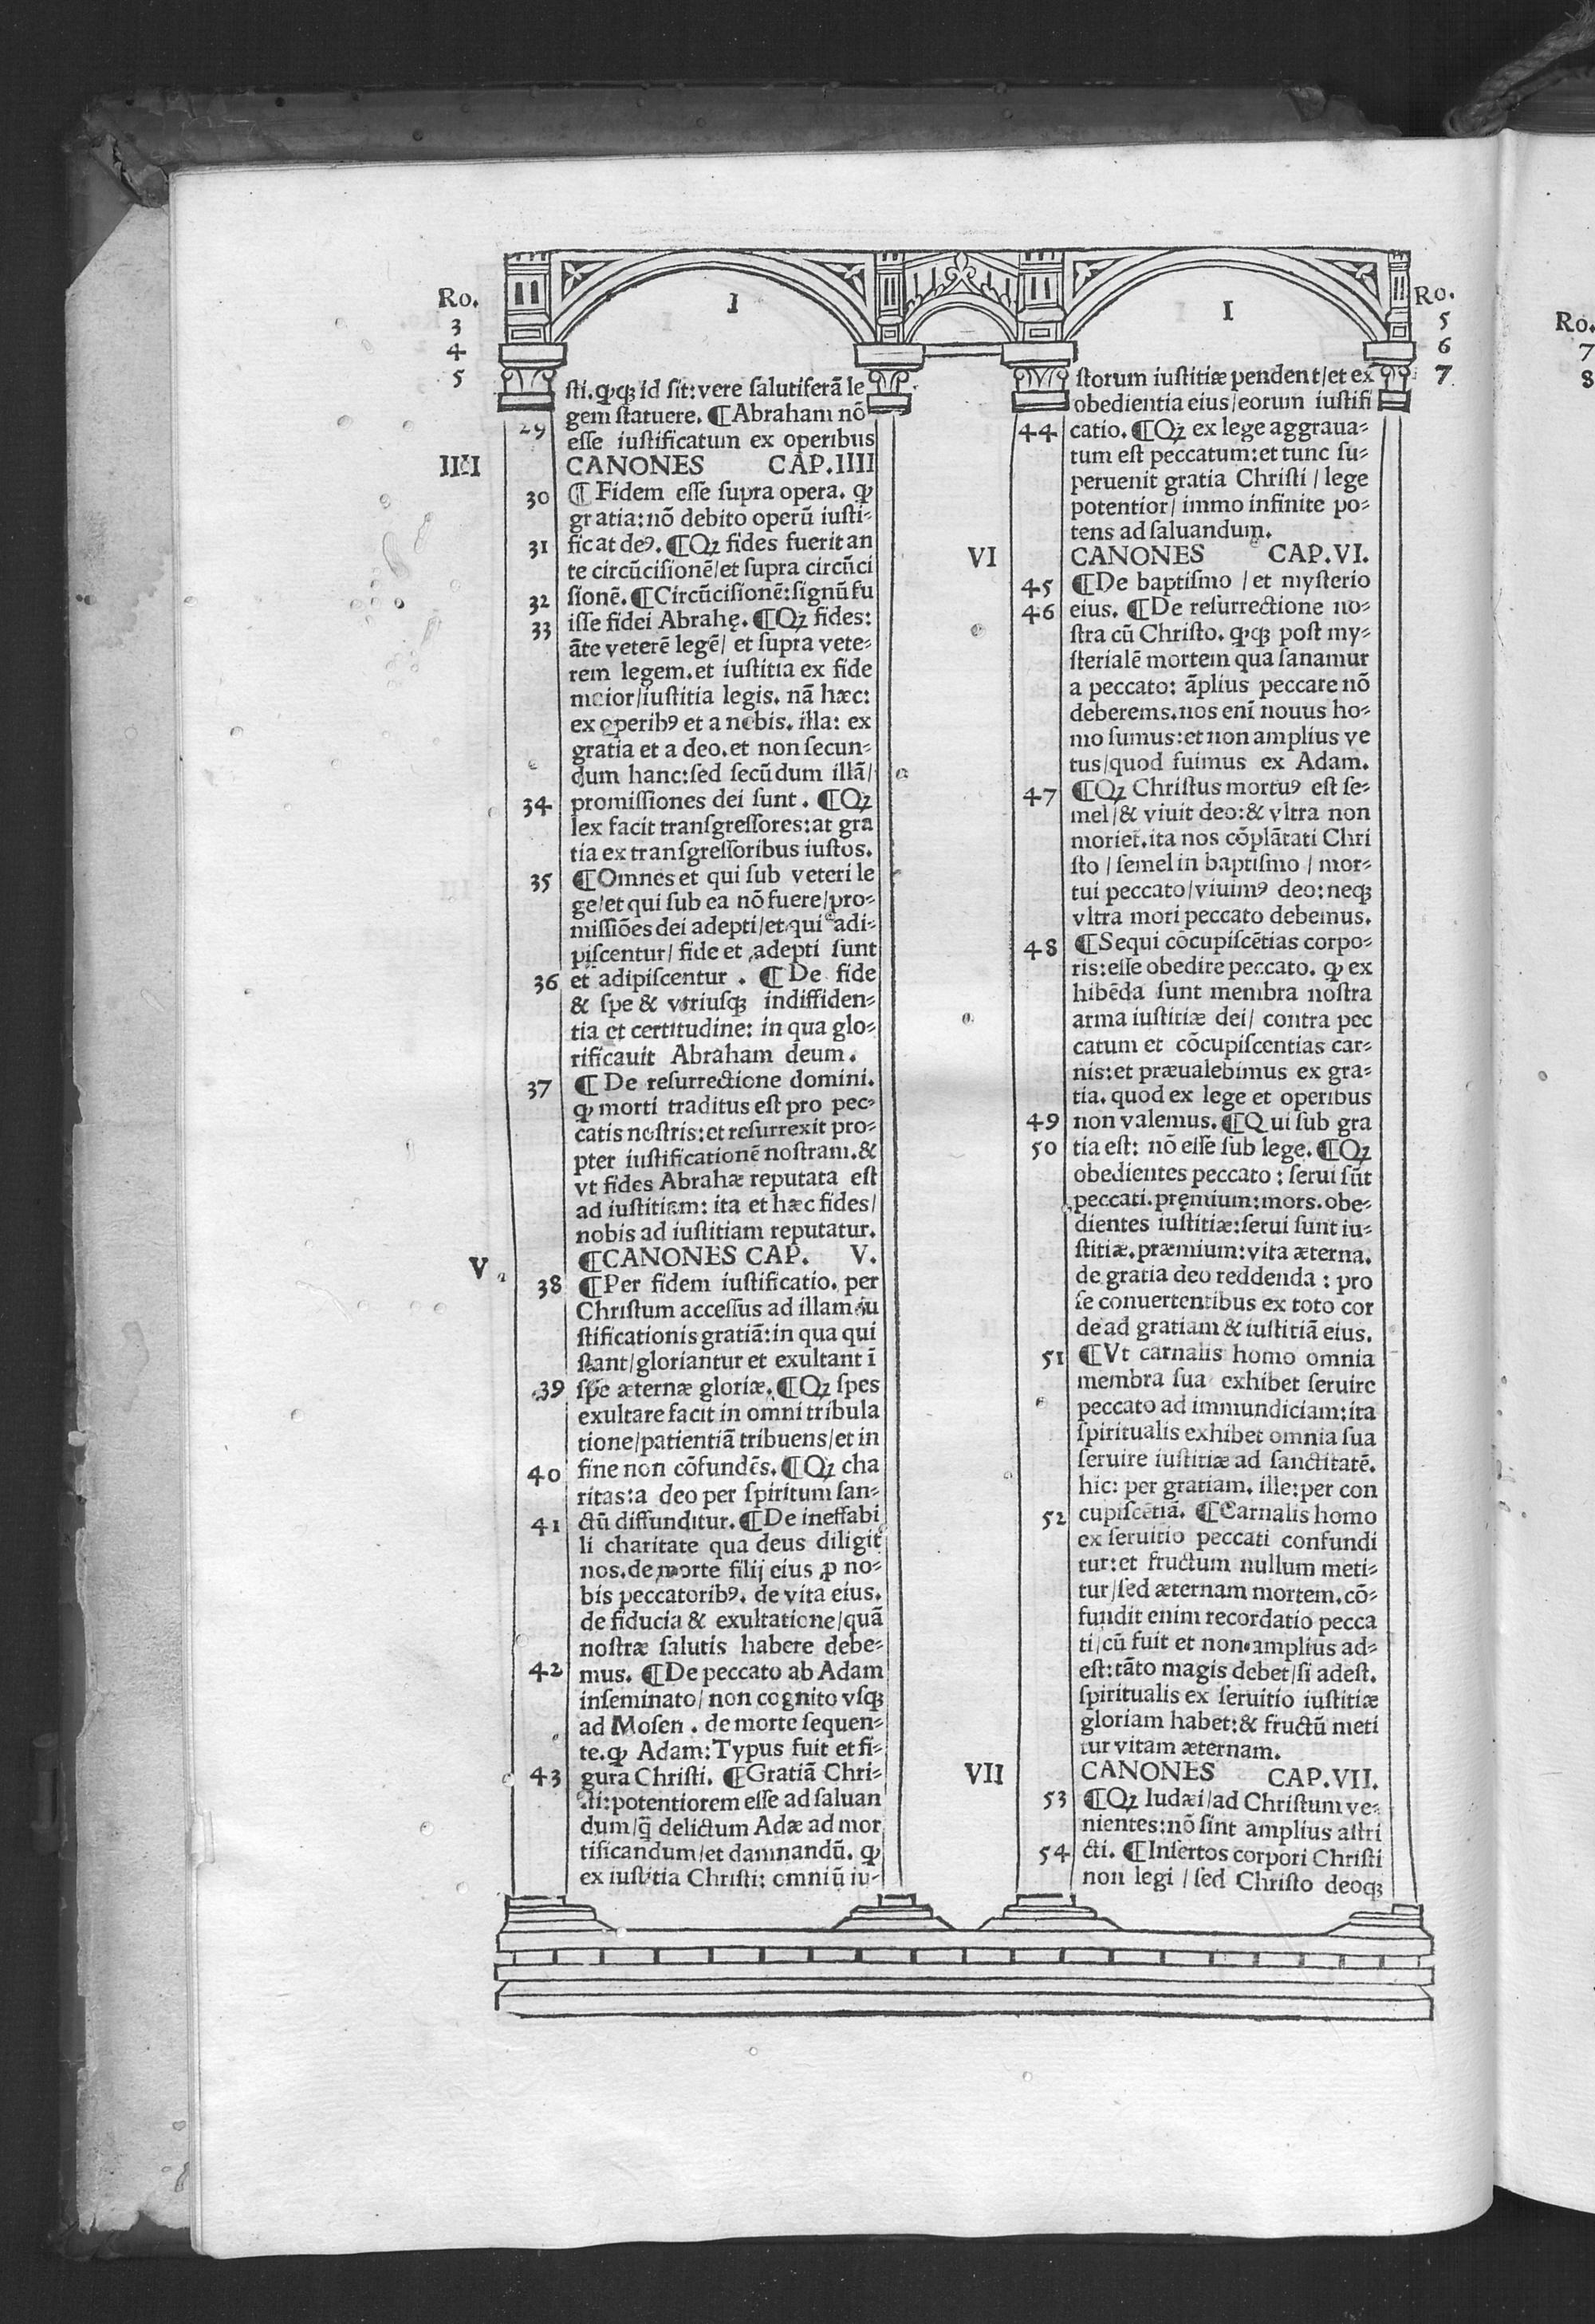 Ro.
3
4
5
I
sti. ꝙꝗꝫ id sit: vere salutiferā le
gem statuere. ¶Abraham nō
29 esse iustificatum ex operibus
IIII CANONES CAP.IIII
30 ¶Fidem esse supra opera. ꝙ
gratia: nō debito operū iusti⸗
31 ficat deꝰ. ¶Qꝫ fides fuerit an
te circūcisionē/et supra circūci
32 sionē. ¶Circūcisionē: signū fu
33 isse fidei Abrahę. ¶Qꝫ fides:
āte veterē legē/ et supra vete⸗
rem legem. et iustitia ex fide
maior/iustitia legis. nā hæc:
ex operibꝰ et a nobis. illa: ex
gratia et a deo. et non secun⸗
dum hanc: sed secūdum illā/
34 promissiones dei sunt. ¶Qꝫ
lex facit transgressores: at gra
tia ex transgressoribus iustos.
35 ¶Omnes et qui sub veteri le
ge/et qui sub ea nō fuere/pro⸗
missiōes dei adepti/et qui adi⸗
piscentur/ fide et adepti sunt
36 et adipiscentur. ¶De fide
& spe & vtriusqꝫ indiffiden⸗
tia et certitudine: in qua glo⸗
rificauit Abraham deum.
37 ¶De resurrectione domini.
ꝙ morti traditus est pro pec⸗
catis nostris: et resurrexit pro⸗
pter iustificationē nostram. &
vt fides Abrahæ reputata est
ad iustitiam: ita et hæc fides/
nobis ad iustitiam reputatur.
V ¶CANONES CAP. V.
38 ¶Per fidem iustificatio. per
Christum accessus ad illam iu
stificationis gratiā: in qua qui
stant/gloriantur et exultant ī
39 spe æternæ gloriæ. ¶Qꝫ spes
exultare facit in omni tribula
tione/patientiā tribuens/et in
40 fine non cōfundēs. ¶Qꝫ cha
ritas: a deo per spiritum san⸗
41 ctū diffunditur. ¶De ineffabi
li charitate qua deus diligit
nos. de morte filij eius ꝓ no⸗
bis peccatoribꝰ. de vita eius.
de fiducia & exultatione/quā
nostræ salutis habere debe⸗
42 mus. ¶De peccato ab Adam
inseminato/ non cognito vsqꝫ
ad Mosen. de morte sequen⸗
te. ꝙ Adam: Typus fuit et fi⸗
43 gura Christi. ¶Gratiā Chri⸗
sti: potentiorem esse ad saluan
dum/q̄ delictum Adæ ad mor
tificandum/et damnandū. ꝙ
ex iustitia Christi: omniū iu⸗
Ro.
5
6
7
I
storum iustitiæ pendent/et ex
obedientia eius/eorum iustifi
44 catio. ¶Qꝫ ex lege aggraua⸗
tum est peccatum: et tunc su⸗
peruenit gratia Christi / lege
potentior/ immo infinite po⸗
tens ad saluandum.
VI CANONES CAP.VI.
45 ¶De baptismo / et mysterio
46 eius. ¶De resurrectione no⸗
stra cū Christo. ꝙꝗꝫ post my⸗
sterialē mortem qua sanamur
a peccato: āplius peccare nō
deberems. nos enī nouus ho⸗
mo sumus: et non amplius ve
tus/quod fuimus ex Adam.
47 ¶Qꝫ Christus mortuꝰ est se⸗
mel/& viuit deo: & vltra non
moriet̄. ita nos cōplātati Chri
sto / semel in baptismo / mor⸗
tui peccato/viuimꝰ deo: neqꝫ
vltra mori peccato debemus.
48 ¶Sequi cōcupiscētias corpo⸗
ris: esse obedire peccato. ꝙ ex
hibēda sunt membra nostra
arma iustitiæ dei/ contra pec
catum et cōcupiscentias car⸗
nis: et præualebimus ex gra⸗
tia. quod ex lege et operibus
49 non valemus. ¶Qui sub gra
50 tia est: nō esse sub lege. ¶Qꝫ
obedientes peccato: serui sūt
peccati. pręmium: mors. obe⸗
dientes iustitiæ: serui sunt iu⸗
stitiæ. præmium: vita æterna.
de gratia deo reddenda: pro
se conuertentibus ex toto cor
de ad gratiam & iustitiā eius.
51 ¶Vt carnalis homo omnia
membra sua exhibet seruire
peccato ad immundiciam: ita
spiritualis exhibet omnia sua
seruire iustitiæ ad sanctitatē.
hic: per gratiam. ille: per con
52 cupiscētiā. ¶Carnalis homo
ex seruitio peccati confundi
tur: et fructum nullum meti⸗
tur/sed æternam mortem. cō⸗
fundit enim recordatio pecca
ti/cū fuit et non amplius ad⸗
est: tāto magis debet/si adest.
spiritualis ex seruitio iustitiæ
gloriam habet: & fructū meti
tur vitam æternam.
VII CANONES CAP.VII.
53 ¶Qꝫ Iudæi/ad Christum ve⸗
nientes: nō sint amplius astri
54 cti. ¶Insertos corpori Christi
non legi / sed Christo deoqꝫ
Ro.
7
8